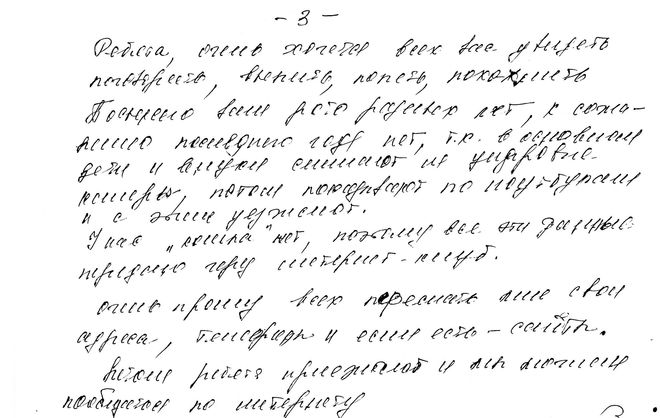 - 3 -
Ребята, очень хочется всех вас увидеть
поговорить, выпить, попеть, похохмить
Посылаю вам фото разных лет, к сожа-
лению последнего года нет, т.к. в основном
дети и внуки снимают на цифровые
камеры, потом показывают по ноутбукам
и с этим уезжают.
У нас „компа" нет, поэтому все эти данные
через интернет-клуб.
очень прошу всех переслать мне свои
адреса, телефоны и если есть - сайты.
Летом ребята приезжают и мы можем
пообщаться по интернету